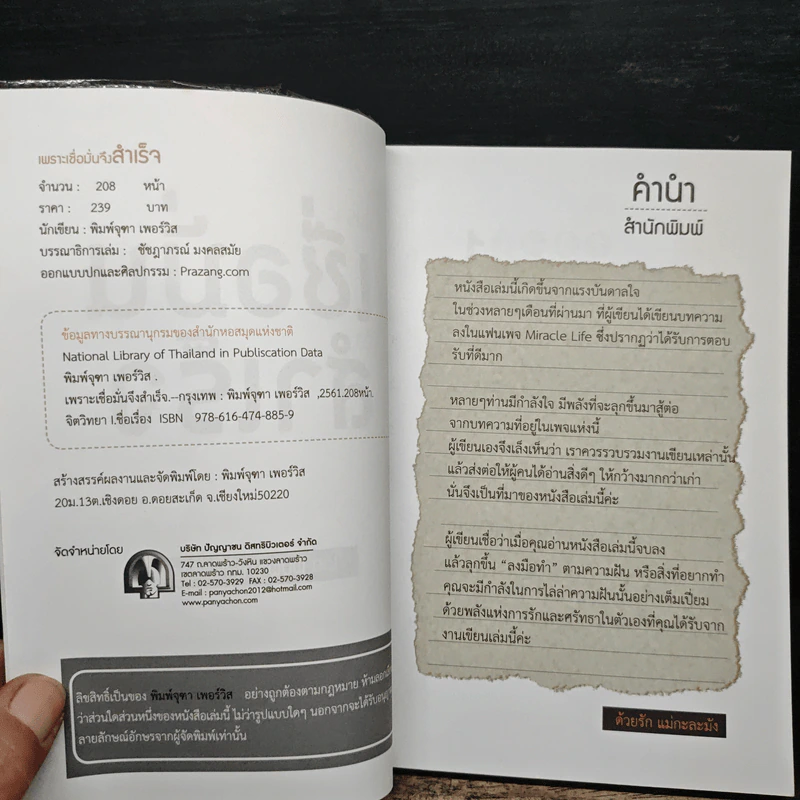 เพราะเชื่อมั่นจึงสำเร็จ
จำนวน : 208 หน้า
ราคา : 239 บาท
นักเขียน : พิมพ์จุฑา เพอร์วิส
บรรณาธิการเล่ม : ชัชฎาภรณ์ มงคลสมัย
ออกแบบปกและศิลปกรรม : Prazang.com
ข้อมูลทางบรรณานุกรมของสำนักหอสมุดแห่งชาติ
National Library of Thailand in Publiscation Data
พิมพ์จุฑา เพอร์วิส .
เพราะเชื่อมั่นจึงสำเร็จ.--กรุงเทพ : พิมพ์จุฑา เพอร์วิส ,2561.208หน้า.
จิตวิทยา I.ชื่อเรื่อง ISBN 978-616-474-885-9
สร้างสรรค์ผลงานและจัดพิมพ์โดย : พิมพ์จุฑา เพอร์วิส
20ม.13ต.เชิงดอย อ.ดอยสะเก็ด จ.เชียงใหม่50220
จัดจำหน่ายโดย
บริษัท ปัญญาชน ดิสทริบิวเตอร์ จำกัด
747 ถ.ลาดพร้าว-วังหิน แขวงลาดพร้าว
เขตลาดพร้าว กทม. 10230
Tel : 02-570-3929 FAX : 02-570-3928
E-mail : panyachon2012@hotmail.com
www.panyachon.com
ลิขสิทธิ์เป็นของ พิมพ์จุฑา เพอร์วิส อย่างถูกต้องตามกฎหมาย ห้ามลอกเลีย
ว่าส่วนใดส่วนหนึ่งของหนังสือเล่มนี้ ไม่ว่ารูปแบบใดๆ นอกจากจะได้รับอนุญา
ลายลักษณ์อักษรจากผู้จัดพิมพ์เท่านั้น
คำนำ
สำนักพิมพ์
หนังสือเล่มนี้เกิดขึ้นจากแรงบันดาลใจ
ในช่วงหลายๆเดือนที่ผ่านมา ที่ผู้เขียนได้เขียนบทความ
ลงในแฟนเพจ Miracle Life ซึ่งปรากฏว่าได้รับการตอบ
รับที่ดีมาก
หลายๆท่านมีกำลังใจ มีพลังที่จะลุกขึ้นมาสู้ต่อ
จากบทความที่อยู่ในเพจแห่งนี้
ผู้เขียนเองจึงเล็งเห็นว่า เราควรรวบรวมงานเขียนเหล่านั้น
แล้วส่งต่อให้ผู้คนได้อ่านสิ่งดีๆ ให้กว้างมากกว่าเก่า
นั่นจึงเป็นที่มาของหนังสือเล่มนี้ค่ะ
ผู้เขียนเชื่อว่าเมื่อคุณอ่านหนังสือเล่มนี้จบลง
แล้วลุกขึ้น “ลงมือทำ” ตามความฝัน หรือสิ่งที่อยากทำ
คุณจะมีกำลังในการไล่ล่าความฝันนั้นอย่างเต็มเปี่ยม
ด้วยพลังแห่งการรักและศรัทธาในตัวเองที่คุณได้รับจาก
งานเขียนเล่มนี้ค่ะ
ด้วยรัก แม่กะละมัง